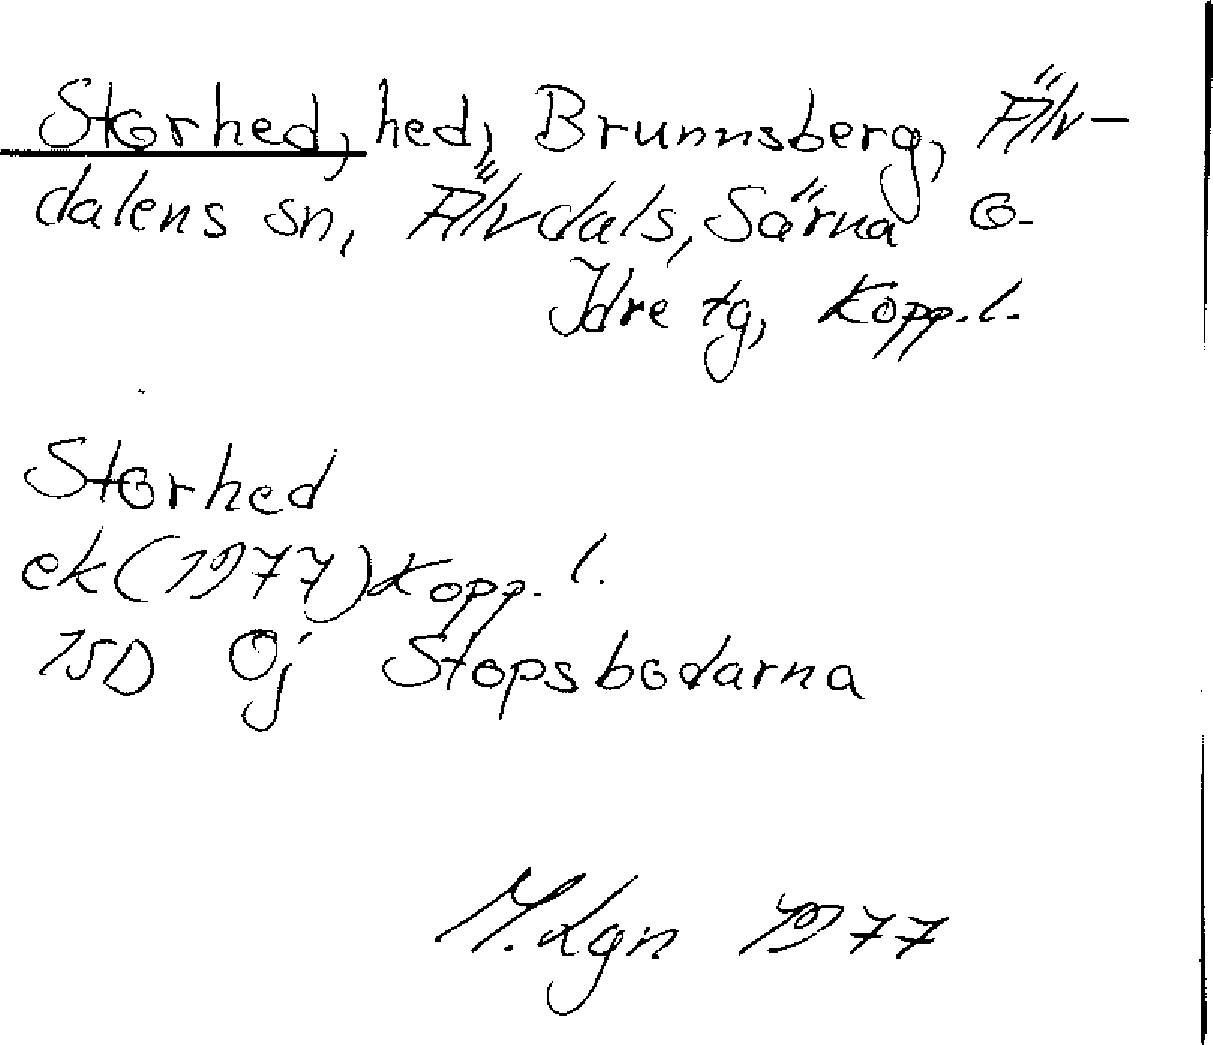 Storhed, hed, Brunnsberg, Älv-
dalens sn, Älvdals, Särna o.
Idre tg, Kopp. l.
Storhed
ek (1977) Kopp. l.
15D 0j Stopsbodarna
M. Lgn 1977